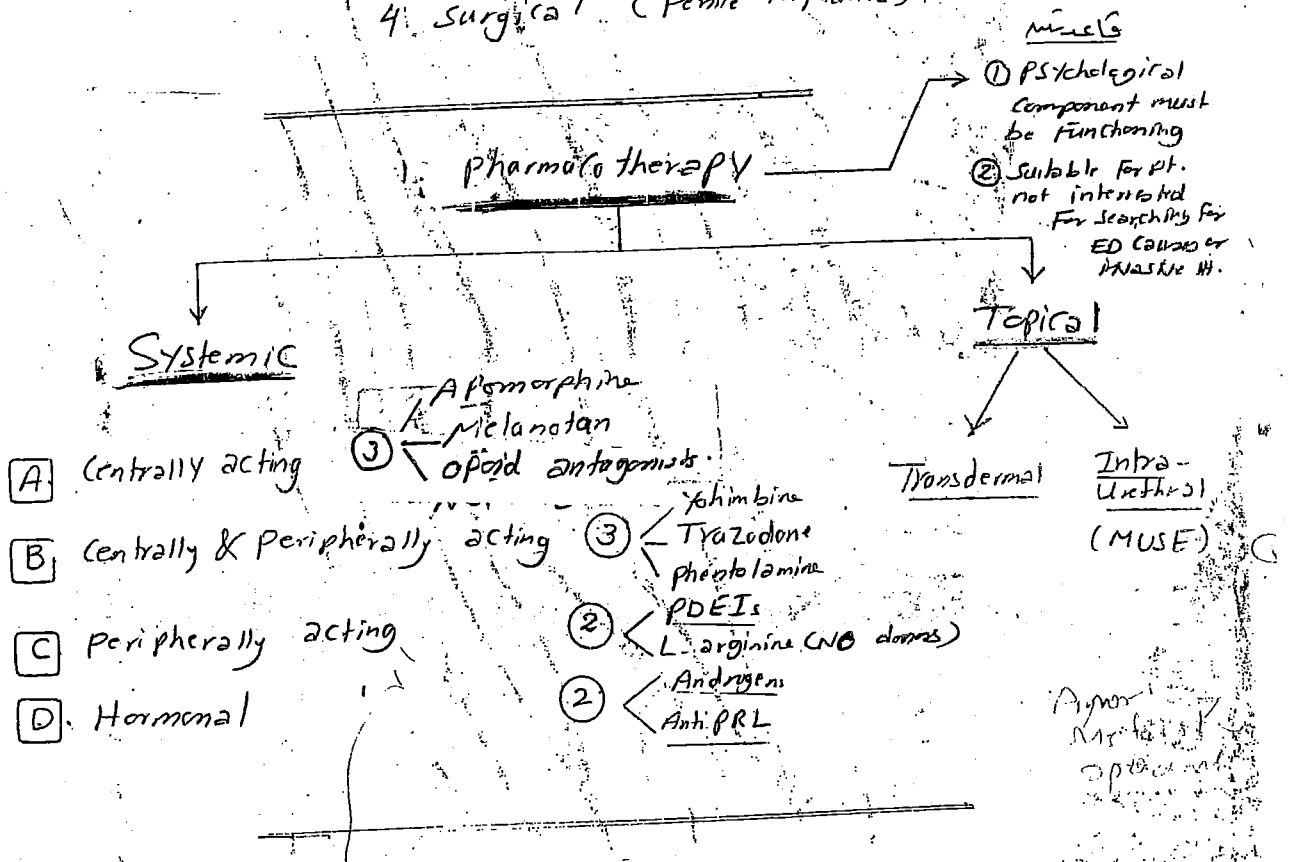 4. Surgical (Penile
① Psychological
Component must
be Functioning
② Suitable For pt.
not interested
For Searching For
ED Causes or
1. Pharmacotherapy
Systemic
Topical
A Centrally acting ③ Apomorphine
Melanotan
opoid antagonists.
B Centrally & Peripherally acting ③ Yohimbine
Trazodone
phentolamine
C Peripherally acting ② PDEIs
L-arginine (NO donors)
D. Hormonal ② Androgens
Anti PRL
Transdermal
Intra-
Urethral
(MUSE)